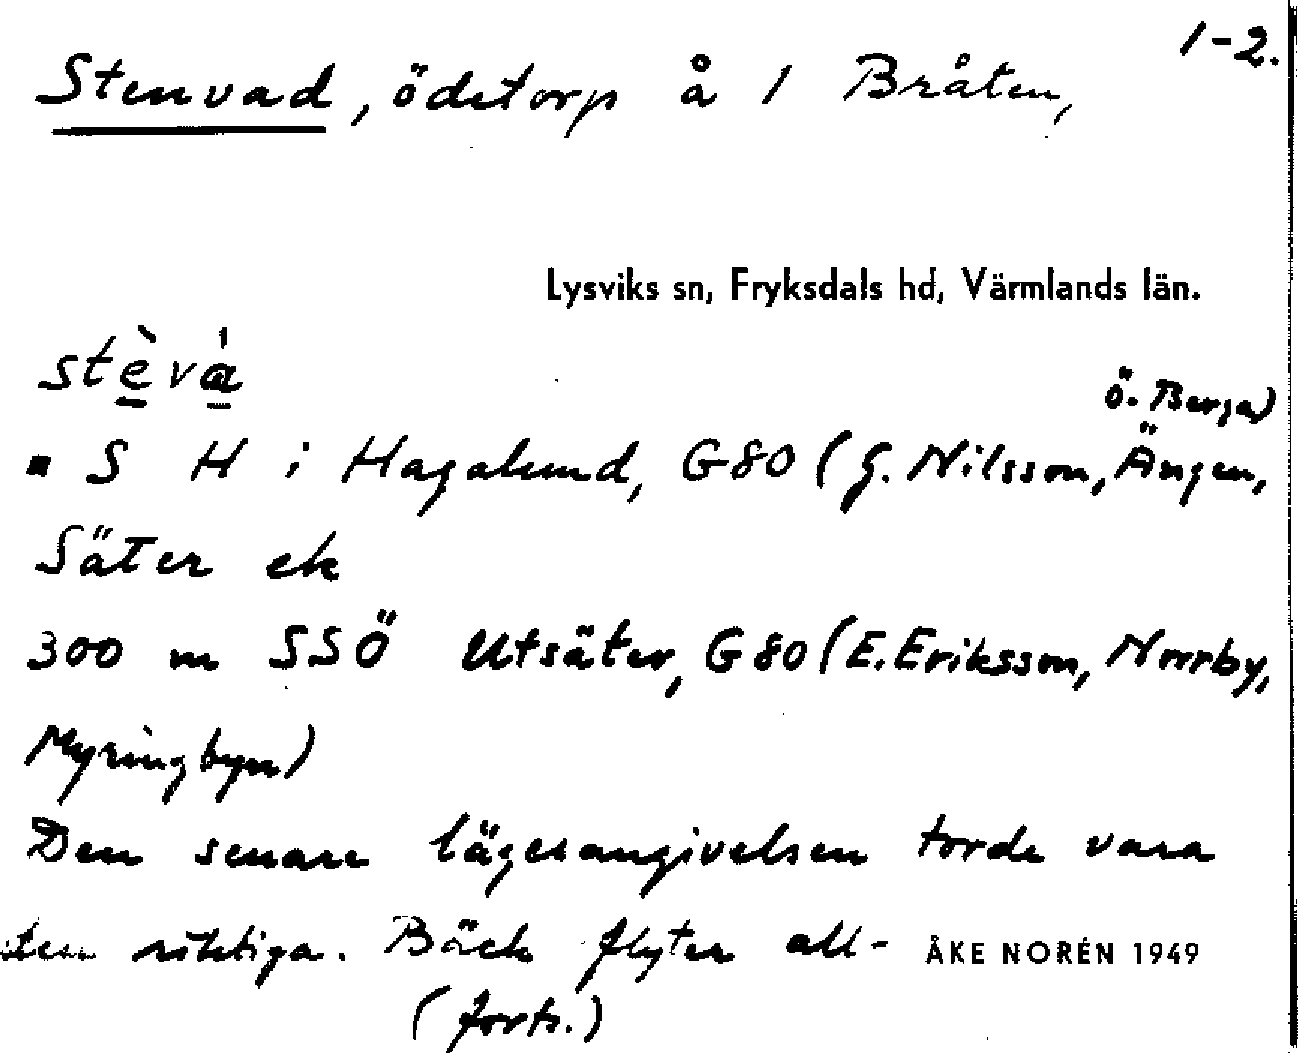 1-2.
Stenvad, ödetorp å 1 Bråten,
Lysviks sn, Fryksdals hd, Värmlands län.
stè̱vá̱
Ö. Berga)
S H i Hagalund, G80 (G. Nilsson, Ängen,
Säter ek
300 m SSÖ Utsäter, G80 (E. Eriksson, Norrby,
Myringbyn)
Den senare lägesangivelsen torde vara
den riktiga. Bäck flyter all-
ÅKE NORÉN 1949
(forts.)